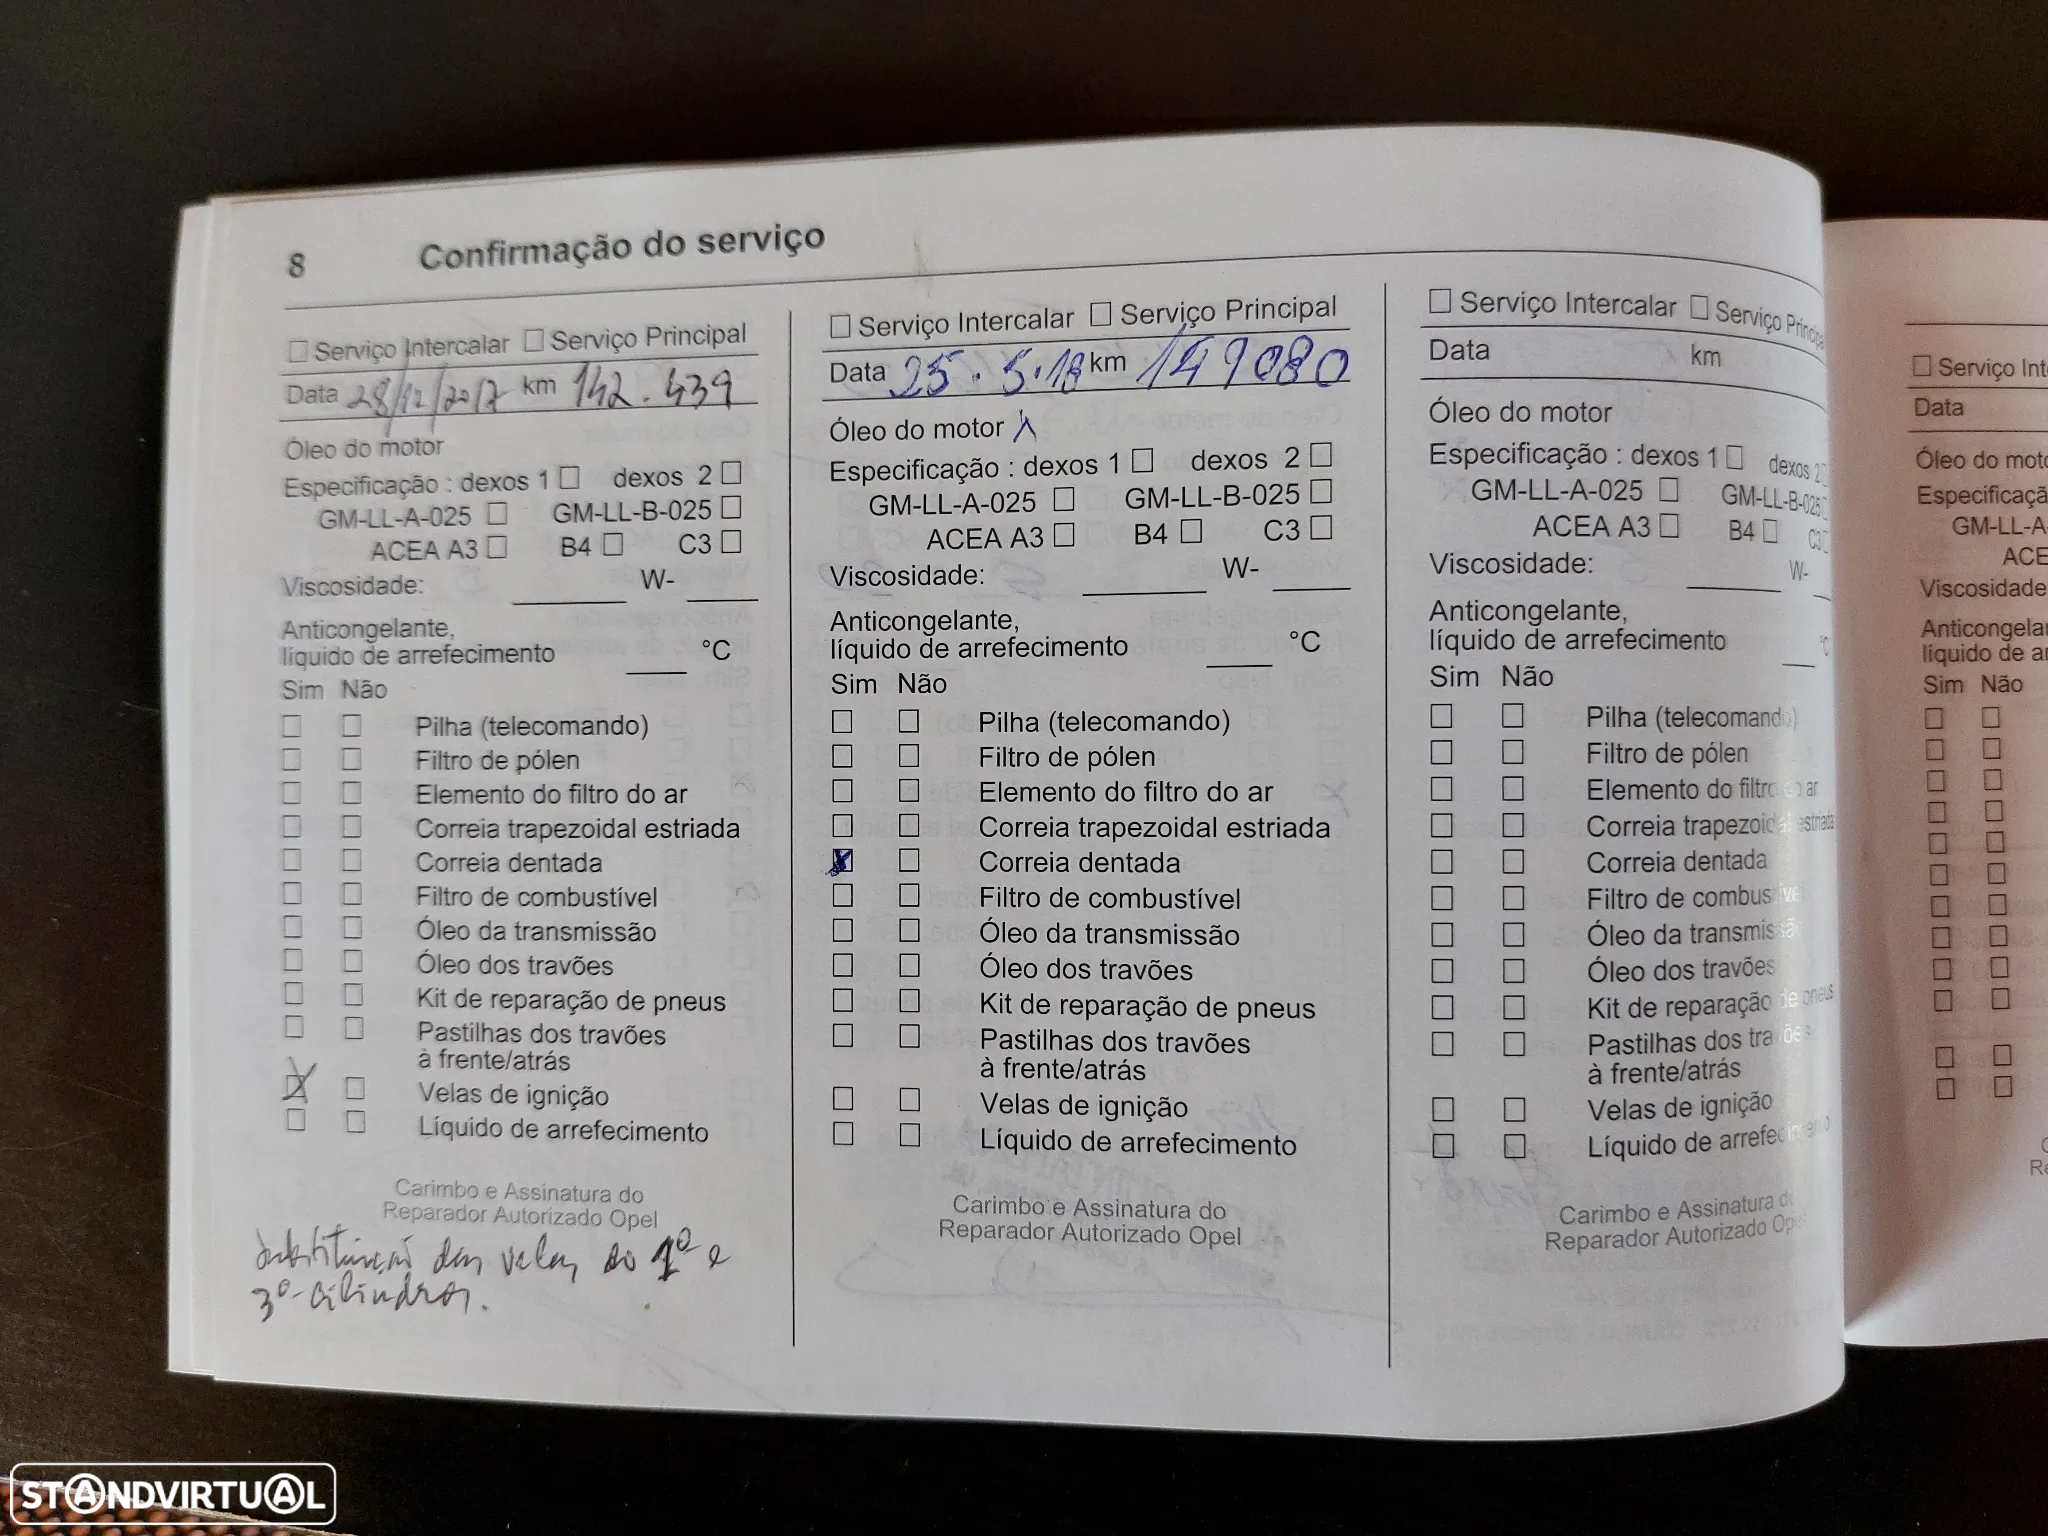 8 Confirmação do serviço
☐ Serviço Intercalar ☐ Serviço Principal
Data 28/12/2017 km 142.439
Óleo do motor
Especificação : dexos 1 ☐ dexos 2 ☐
GM-LL-A-025 ☐ GM-LL-B-025 ☐
ACEA A3 ☐ B4 ☐ C3 ☐
Viscosidade: ____ W- ____
Anticongelante,
líquido de arrefecimento ____ °C
Sim Não
☐ ☐ Pilha (telecomando)
☐ ☐ Filtro de pólen
☐ ☐ Elemento do filtro do ar
☐ ☐ Correia trapezoidal estriada
☐ ☐ Correia dentada
☐ ☐ Filtro de combustível
☐ ☐ Óleo da transmissão
☐ ☐ Óleo dos travões
☐ ☐ Kit de reparação de pneus
☐ ☐ Pastilhas dos travões
à frente/atrás
☒ ☐ Velas de ignição
☐ ☐ Líquido de arrefecimento
Carimbo e Assinatura do
Reparador Autorizado Opel
substituição das velas do 1º e
3º cilindros.
☐ Serviço Intercalar ☐ Serviço Principal
Data 25.5.18 km 149080
Óleo do motor X
Especificação : dexos 1 ☐ dexos 2 ☐
GM-LL-A-025 ☐ GM-LL-B-025 ☐
ACEA A3 ☐ B4 ☐ C3 ☐
Viscosidade: ____ W- ____
Anticongelante,
líquido de arrefecimento ____ °C
Sim Não
☐ ☐ Pilha (telecomando)
☐ ☐ Filtro de pólen
☐ ☐ Elemento do filtro do ar
☐ ☐ Correia trapezoidal estriada
☒ ☐ Correia dentada
☐ ☐ Filtro de combustível
☐ ☐ Óleo da transmissão
☐ ☐ Óleo dos travões
☐ ☐ Kit de reparação de pneus
☐ ☐ Pastilhas dos travões
à frente/atrás
☐ ☐ Velas de ignição
☐ ☐ Líquido de arrefecimento
Carimbo e Assinatura do
Reparador Autorizado Opel
☐ Serviço Intercalar ☐ Serviço Principal
Data km
Óleo do motor
Especificação : dexos 1 ☐ dexos 2 ☐
GM-LL-A-025 ☐ GM-LL-B-025 ☐
ACEA A3 ☐ B4 ☐ C3 ☐
Viscosidade: ____ W- __
Anticongelante,
líquido de arrefecimento ____ °C
Sim Não
☐ ☐ Pilha (telecomando)
☐ ☐ Filtro de pólen
☐ ☐ Elemento do filtro do ar
☐ ☐ Correia trapezoidal estriada
☐ ☐ Correia dentada
☐ ☐ Filtro de combustível
☐ ☐ Óleo da transmissão
☐ ☐ Óleo dos travões
☐ ☐ Kit de reparação de pneus
☐ ☐ Pastilhas dos travões
à frente/atrás
☐ ☐ Velas de ignição
☐ ☐ Líquido de arrefecimento
Carimbo e Assinatura do
Reparador Autorizado Opel
☐ Serviço Int
Data
Óleo do moto
Especificaçã
GM-LL-A-
ACE
Viscosidade
Anticongela
líquido de ar
Sim Não
STANDVIRTUAL